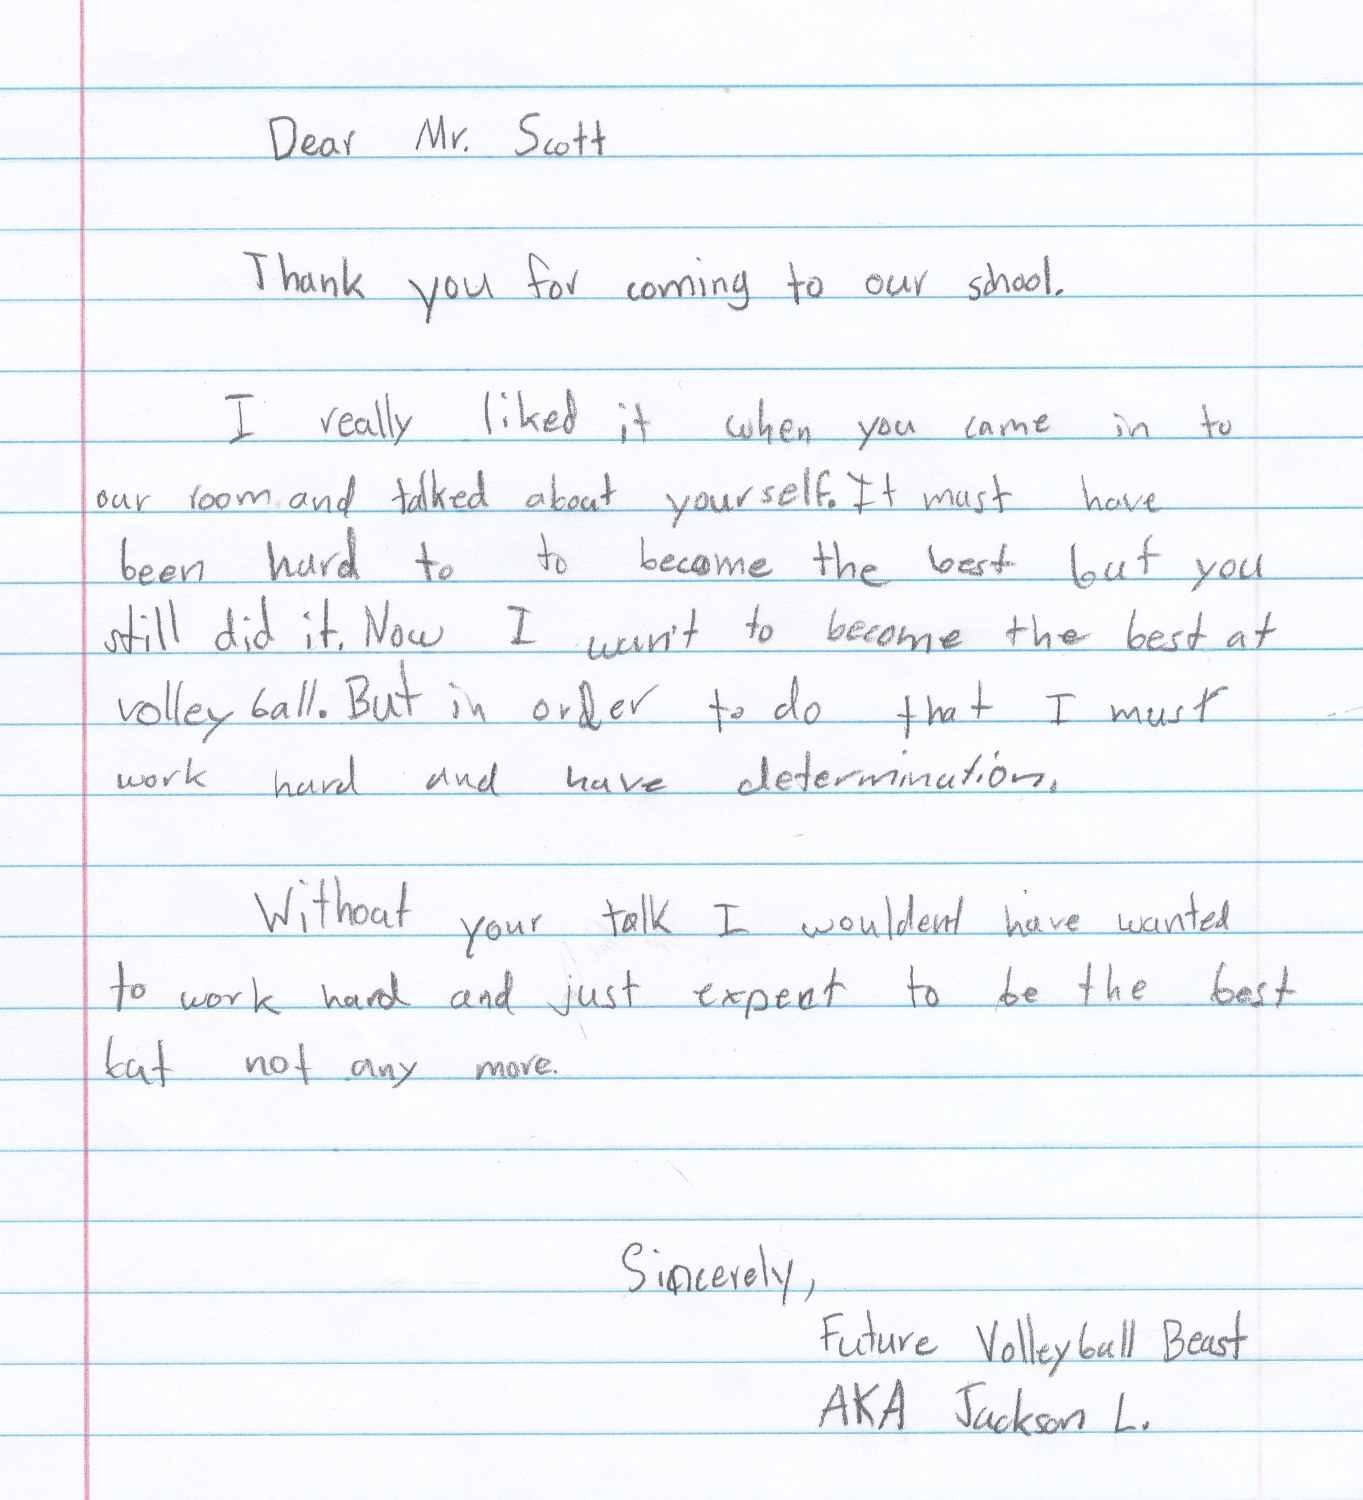 Dear Mr. Scott
Thank you for coming to our school.
I really liked it when you came in to
our room and talked about yourself. It must have
been hard to to become the best but you
still did it. Now I want to become the best at
volley ball. But in order to do that I must
work hard and have determination.
Without your talk I wouldent have wanted
to work hard and just expect to be the best
but not any more.
Sincerely,
Future Volleyball Beast
AKA Jackson L.